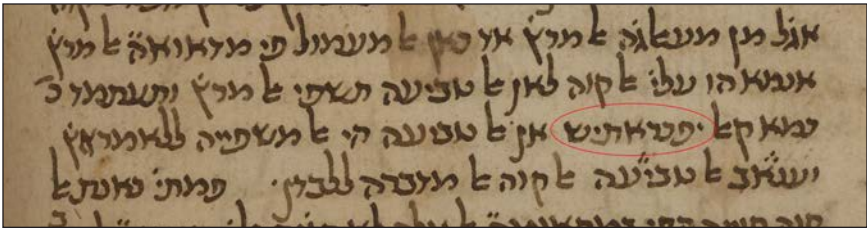 אגל מן מעאלג̇ה אלמרץ̇ אד כאן אלמעמול פי מדאואה̈ אלמרץ̇
אנמא הו עלי̇ אלקוה לאן אלטביעה תשפי אלמרץ̇
כמא קאל יפכראתיש אן אלטביעה הי אלמשפייה ללאמראץ̇
אלטביעה אלקוה אלמדברה ללבדן. פמתי̇ כאנת אל